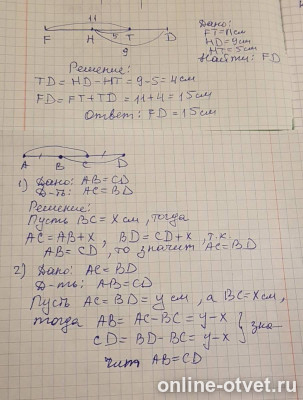 11
F H 5 T D
9
Дано:
FT=11см
HD=9см
HT=5см
Найти: FD
Решение:
TD = HD - HT = 9-5=4см
FD = FT + TD = 11+4=15см
Ответ: FD = 15см
A B C D
1) Дано: AB=CD
Д-ть: AC=BD
Решение:
Пусть BC = X см, тогда
AC=AB+X, BD=CD+X, т.к.
AB=CD, то значит AC=BD
2) Дано: AC=BD
Д-ть: AB=CD
Пусть AC=BD=y см, а BC=Xсм,
тогда AB= AC-BC= y-x } зна-
CD= BD-BC= y-x
чит AB=CD
online-otvet.ru